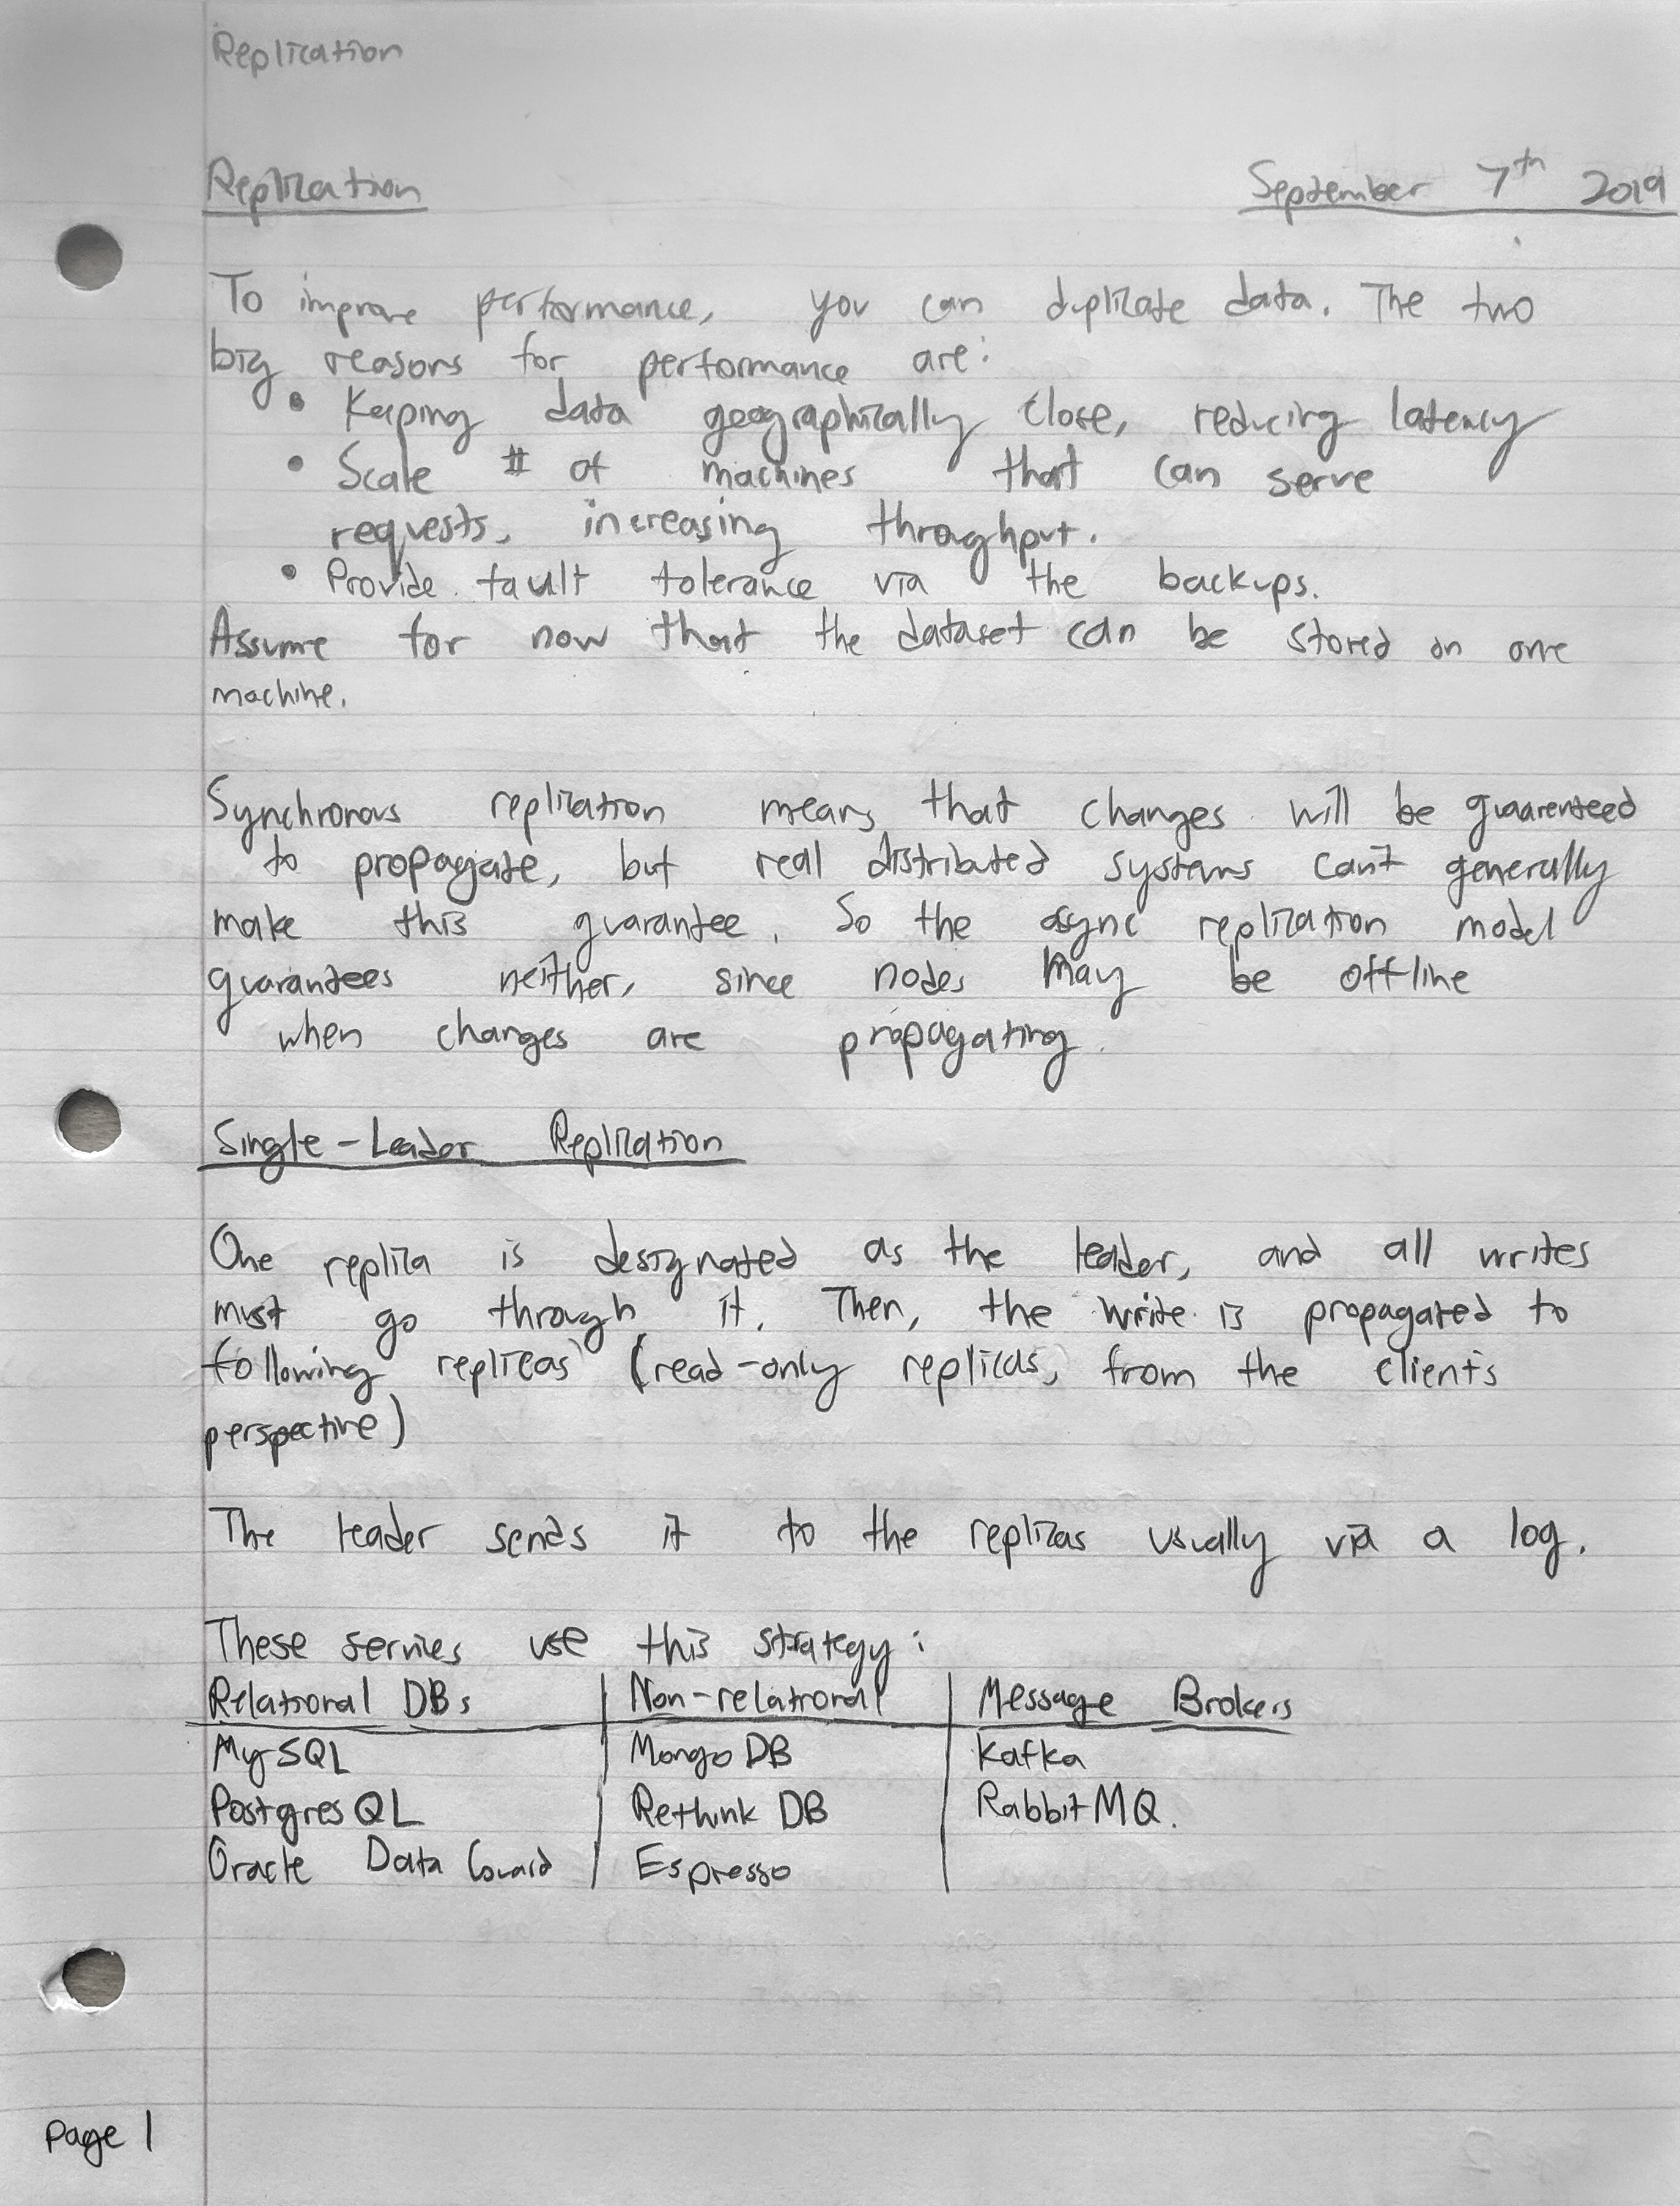 Replication
Replication September 7th 2019
To improve performance, you can duplicate data. The two
big reasons for performance are:
• Keeping data geographically close, reducing latency
• Scale # of machines that can serve
requests, increasing throughput.
• Provide fault tolerance via the backups.
Assume for now that the dataset can be stored on one
machine.
Synchronous replication means that changes will be guaarenteed
to propagate, but real distributed systems can't generally
make this guarantee. So the async replication model
guarantees neither, since nodes may be offline
when changes are propagating.
Single-Leader Replication
One replica is designated as the leader, and all writes
must go through it. Then, the write is propagated to
following replicas (read-only replicas, from the client's
perspective)
The leader sends it to the replicas usually via a log.
These services use this strategy:
Relational DBs Non-relational Message Brokers
MySQL MongoDB Kafka
PostgresQL Rethink DB RabbitMQ.
Oracle Data Guard Espresso
Page 1